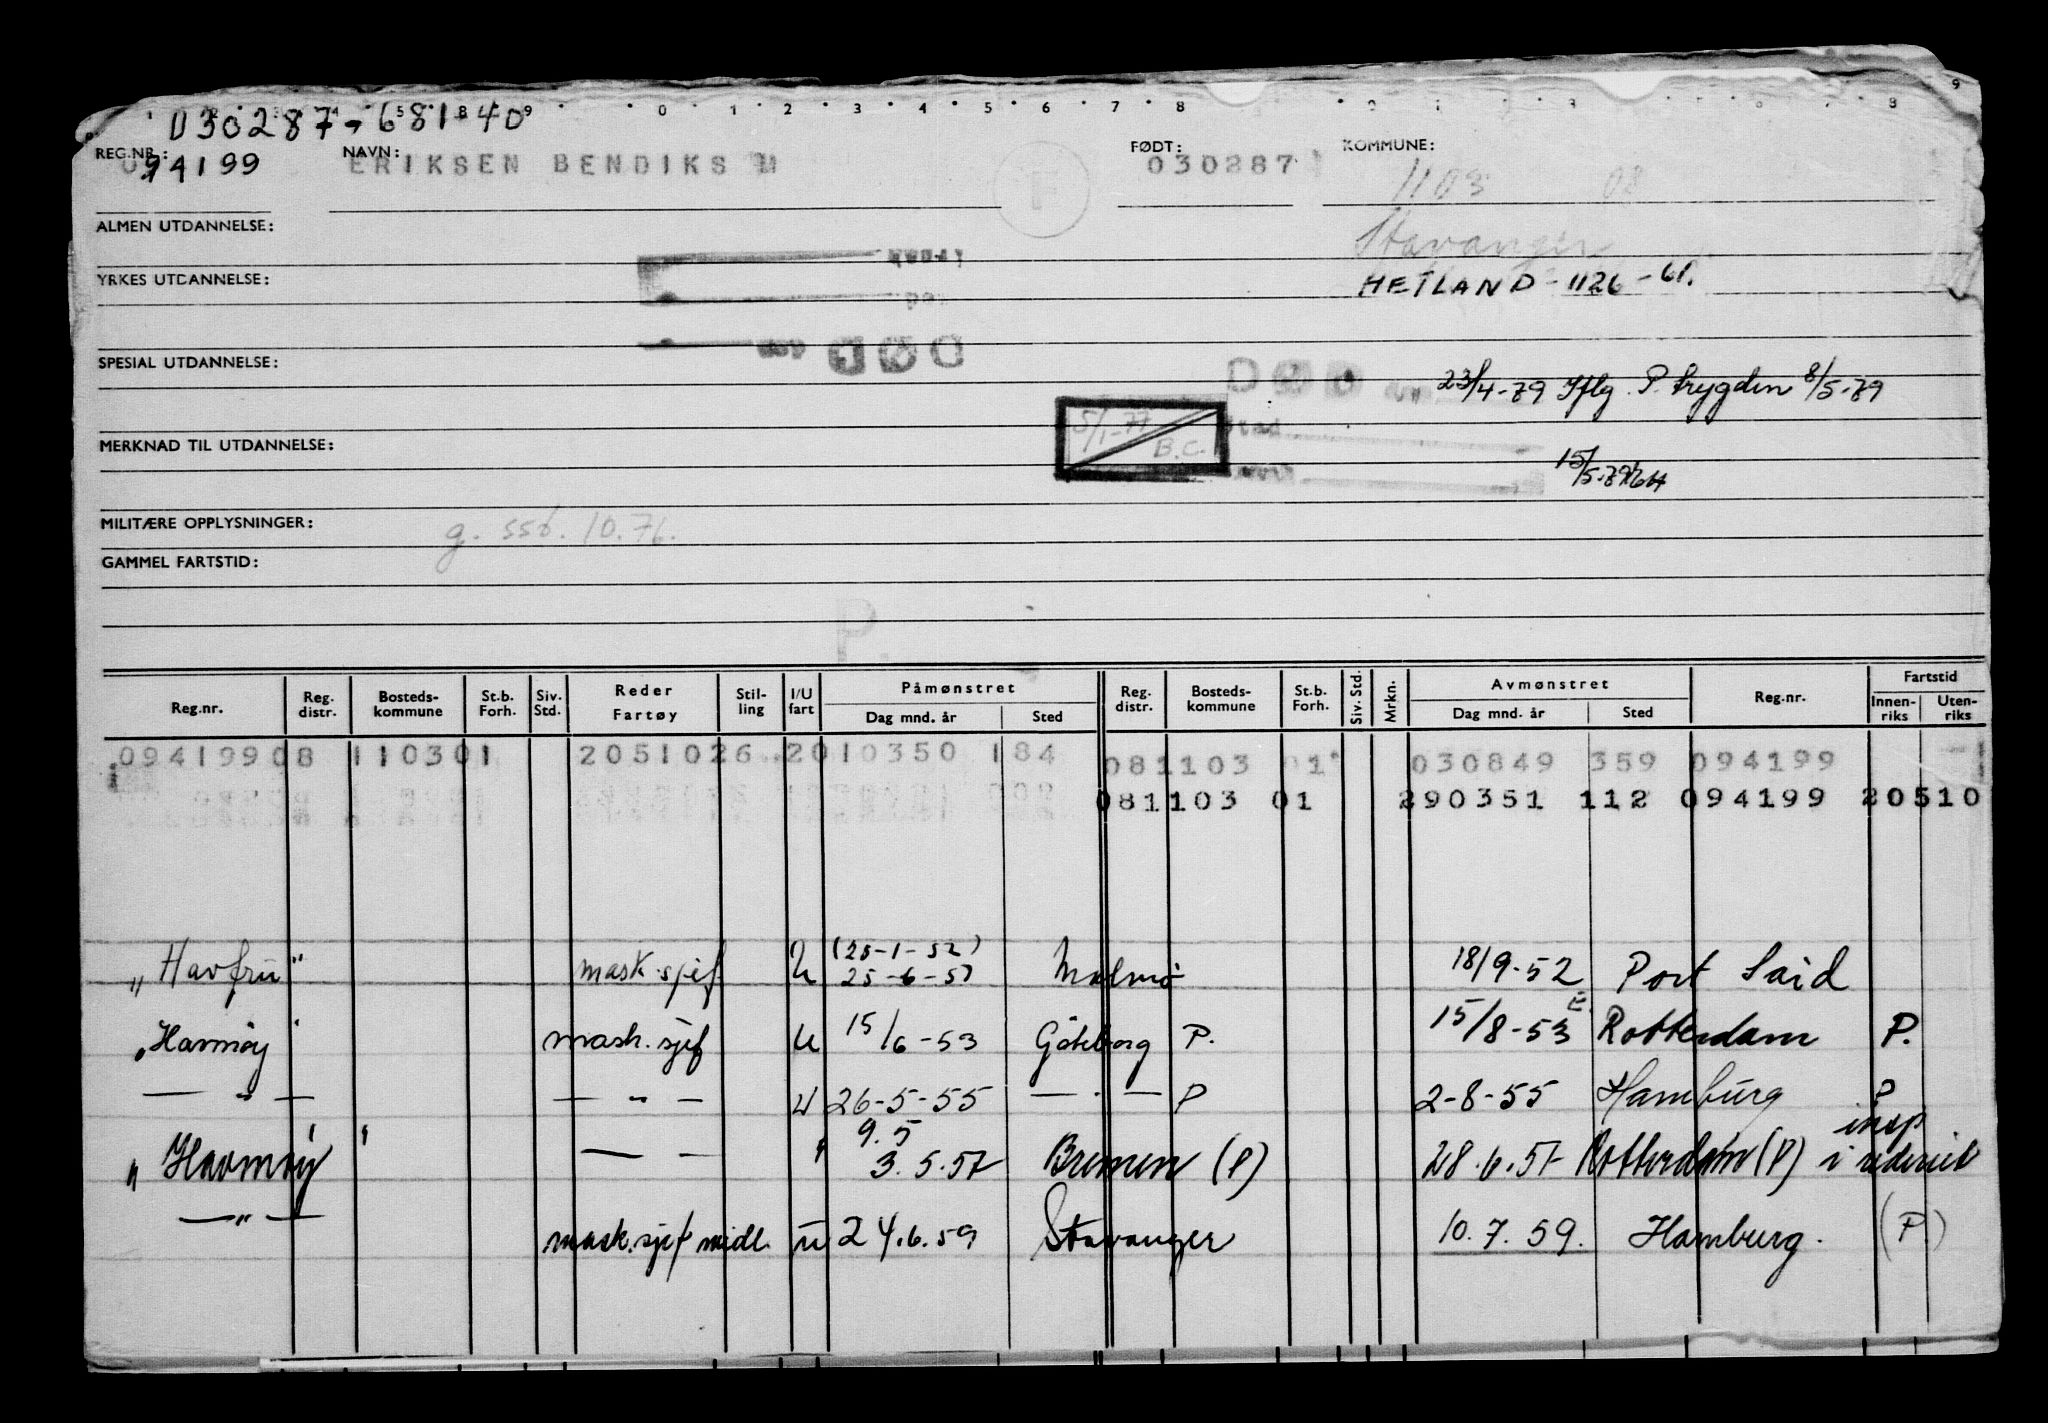 030287-68140
REG.NR.: 094199 NAVN: ERIKSEN BENDIKS FØDT: 030287 KOMMUNE:
1103 08
ALMEN UTDANNELSE: Stavanger
YRKES UTDANNELSE: HETLAND - 1126 - 61.
SPESIAL UTDANNELSE:
DØD 23/4-79 Iflg. P. trygden 8/5-79
5/1-77 B.C.
MERKNAD TIL UTDANNELSE:
15/5-79
MILITÆRE OPPLYSNINGER:
g. ssö. 10.76.
GAMMEL FARTSTID:
P.
Reg.nr. Reg. distr. Bosteds-kommune St.b. Forh. Siv. Std. Reder Fartøy Stil-ling I/U fart Påmønstret Dag mnd. år Sted Reg. distr. Bosteds-kommune St.b. Forh. Siv. Std. Mrkn. Avmønstret Dag mnd. år Sted Reg.nr. Fartstid Innen-riks Uten-riks
09419908 110301 2051026 2010350 184 081103 01 030849 359 094199
081103 01 290351 112 094199 20510
"Havfru" mask.sjef U (25-1-52) 25-6-51 Malmö 18/9-52 Port Said
"Havmøy" mask. sjef U 15/6-53 Göteborg P. 15/8-53 Rotterdam P.
— " — — " — U 26-5-55 — " — P 2-8-55 Hamburg P
"Havmøy" — — " 9.5 3.5.57 Bremen (P) 28.6.57 Rotterdam (P) insp i rederiet
— " — mask.sjef midl. u 24.6.59 Stavanger 10.7.59. Hamburg. (P.)